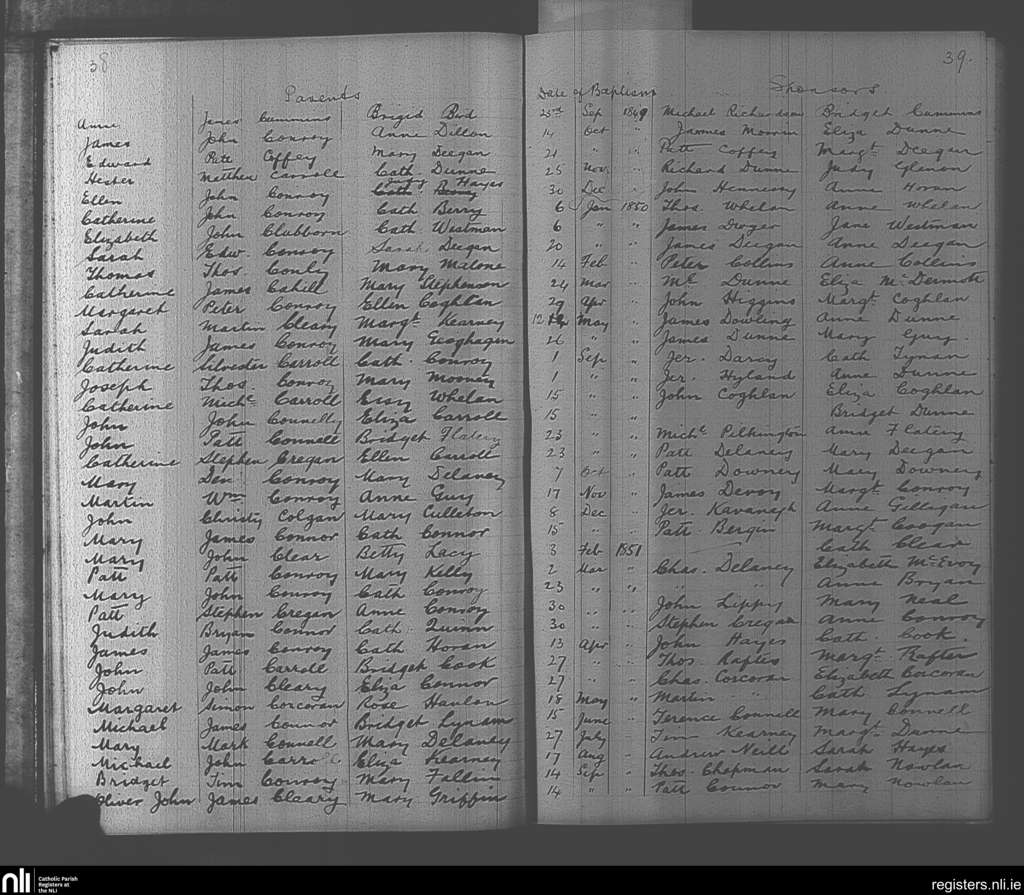 38
Parents
Anne James Cummins Brigid Bird
James John Conroy Anne Dillon
Edward Patt Coffey Mary Deegan
Hester Matthew Carroll Cath Dunne
Ellen John Conroy Judy Hayes
Catherine John Conroy Cath Berry
Elizabeth John Clubborn Cath Westman
Sarah Edw. Conroy Sarah Deegan
Thomas Thos. Conly Mary Malone
Catherine James Cahill Mary Stephenson
Margaret Peter Conroy Ellen Coghlan
Sarah Martin Cleary Margt. Kearney
Judith James Conroy Mary Geoghagen
Catherine Silvester Carroll Cath. Conroy
Joseph Thos. Conroy Mary Mooney
Catherine Michl. Carroll Essy Whelan
John John Connelly Eliza Carroll
John Patt Connell Bridget Flatery
Catherine Stephen Cregan Ellen Carroll
Mary Den. Conroy Mary Delaney
Martin Wm. Conroy Anne Guy
John Christy Colgan Mary Culleton
Mary James Connor Cath Connor
Mary John Clear Betty Lacy
Patt Patt Conroy Mary Kelly
Mary John Conroy Cath Conroy
Patt Stephen Cregan Anne Conroy
Judith Bryan Connor Cath. Quinn
James James Conroy Cath Horan
John Patt Carroll Bridget Cook
John John Cleary Eliza Connor
Margaret Simon Corcoran Rose Hanlon
Michael James Connor Bridget Lynam
Mary Mark Connell Mary Delaney
Michael John Carroll Eliza Kearney
Bridget Tim Conroy Mary Fallin
Oliver John James Cleary Mary Griffin
39.
Date of Baptism Sponsors
25th Sep 1849 Michael Richardson Bridget Cummins
14 Oct " James Moran Eliza Dunne
21 " " Patt Coffey Margt. Deegan
25 Nov. " Richard Dunne Judy Glenon
30 Dec " John Hennessy Anne Horan
6 Jan 1850 Thos. Whelan Anne Whelan
6 " " James Dwyer Jane Westman
20 " " James Deegan Anne Deegan
14 Feb " Peter Collins Anne Collins
24 Mar " Mr. Dunne Eliza McDermott
29 Apr " John Higgins Margt. Coghlan
12 May " James Dowling Anne Dunne
26 " " James Dunne Mary Guy.
1 Sep " Jer. Darcy Cath Tynan
1 " " Jer. Hyland Anne Dunne
15 " " John Coghlan Eliza Coghlan
15 " " Bridget Dunne
23 " " Michl. Pilkington Anne Flatery
23 " " Patt Delaney Mary Deegan
7 Oct " Patt Downey Mary Downey
17 Nov " James Devoy Margt. Conroy
8 Dec " Jer. Kavanagh Anne Gilligan
15 " " Patt Bergin Margt. Coogan
3 Feb 1851 Cath Clear
2 Mar " Chas. Delaney Elizabeth McEvoy
23 " " " Anne Bryan
30 " " John Lippy Mary Neal
30 " " Stephen Cregan Anne Conroy
13 Apr " John Hayes Cath. Cook.
27 " " Thos. Rafter Margt. Rafter
27 " " Chas. Corcoran Elizabeth Corcoran
18 May " Martin " Cath Lynam
15 June " Terence Connell Mary Connell
27 July " Tim Kearney Margt. Dunne
17 Aug " Andrew Neill Sarah Hayes
14 Sep " Thos. Chapman Sarah Nowlan
14 " " Patt Connor Mary Nowlan
nli Catholic Parish
Registers at
the NLI
registers.nli.ie